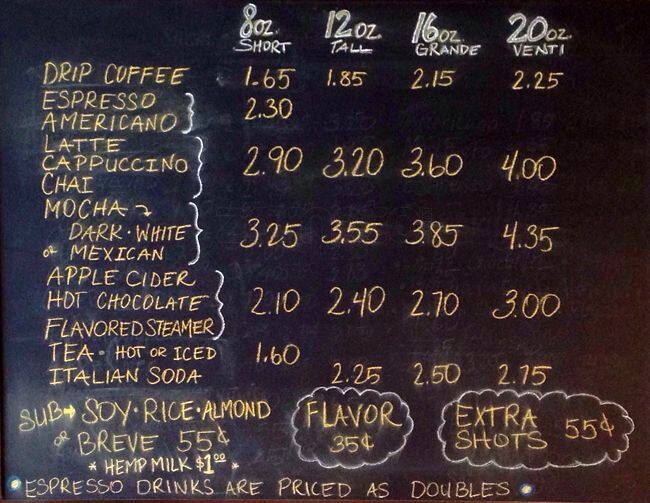 8oz. 12oz. 16oz. 20oz.
SHORT TALL GRANDE VENTI
DRIP COFFEE 1.65 1.85 2.15 2.25
ESPRESSO
AMERICANO 2.30
LATTE
CAPPUCCINO 2.90 3.20 3.60 4.00
CHAI
MOCHA
DARK · WHITE 3.25 3.55 3.85 4.35
or MEXICAN
APPLE CIDER
HOT CHOCOLATE 2.10 2.40 2.70 3.00
FLAVORED STEAMER
TEA · HOT OR ICED 1.60
ITALIAN SODA 2.25 2.50 2.75
SUB → SOY · RICE · ALMOND
or BREVE 55¢
* HEMP MILK $1.00 *
FLAVOR
35¢
EXTRA
SHOTS 55¢
ESPRESSO DRINKS ARE PRICED AS DOUBLES